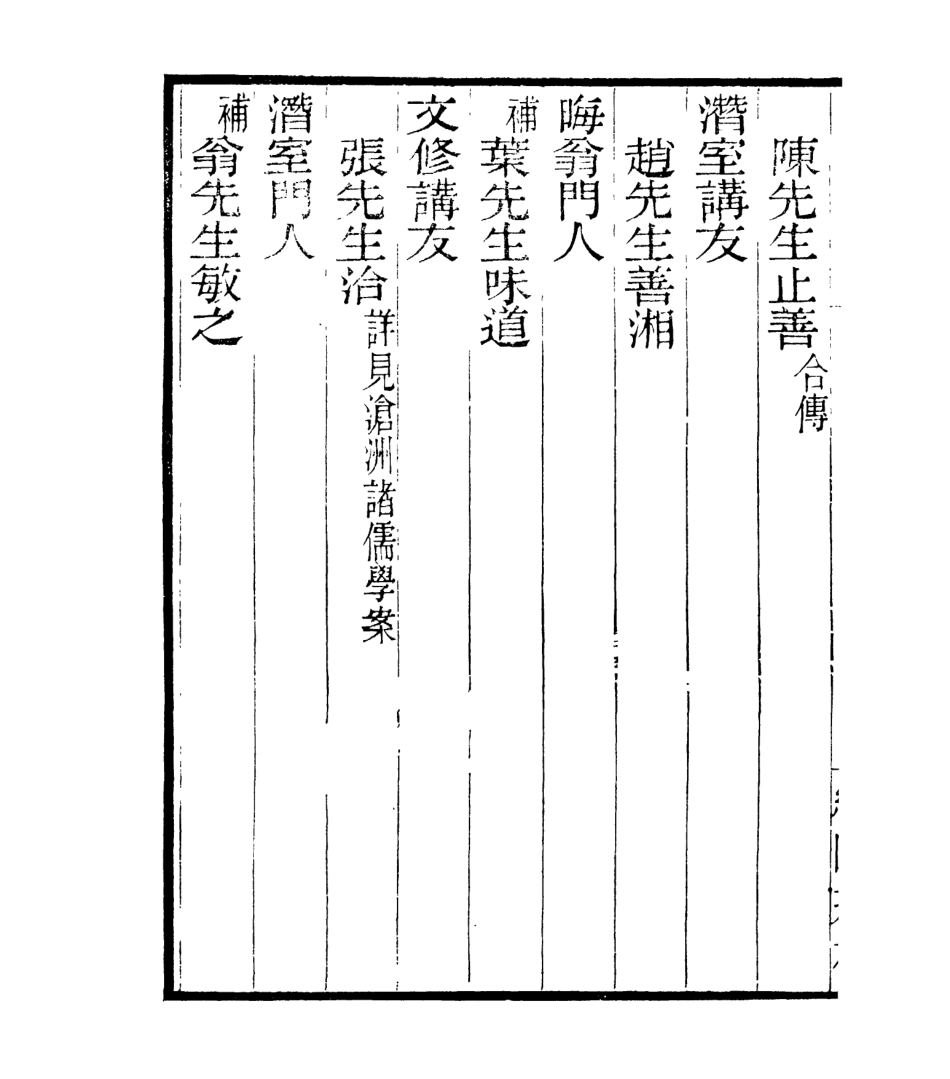 陳先生止善合傳
潛室講友
趙先生善湘
晦翁門人
補葉先生味道
文修講友
張先生洽詳見滄洲諸儒學案
潛室門人
補翁先生敏之